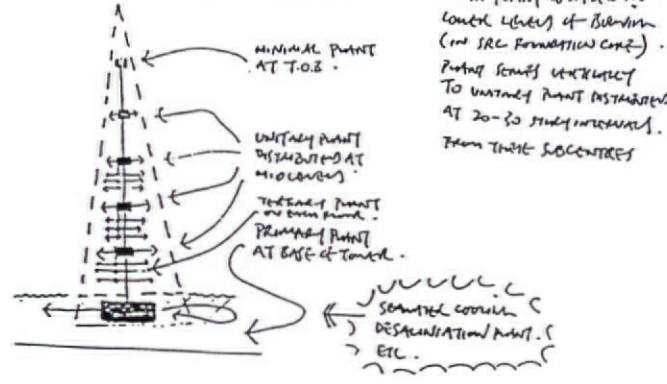 MINIMAL PLANT
AT T.O.B.
UNITARY PLANT
DISTRIBUTED AT
MIDLEVELS.
TERTIARY PLANT
ON EACH FLOOR.
PRIMARY PLANT
AT BASE OF TOWER.
SEAWATER COOLING
DESALINISATION PLANT.
ETC.
LOWER LEVELS OF BUILDING
(IN SRC FOUNDATION CORE).
PLANT SERVES VERTICALLY
TO UNITARY PLANT DISTRIBUTED
AT 20-30 STORY INTERVALS.
FROM THESE SUBCENTRES